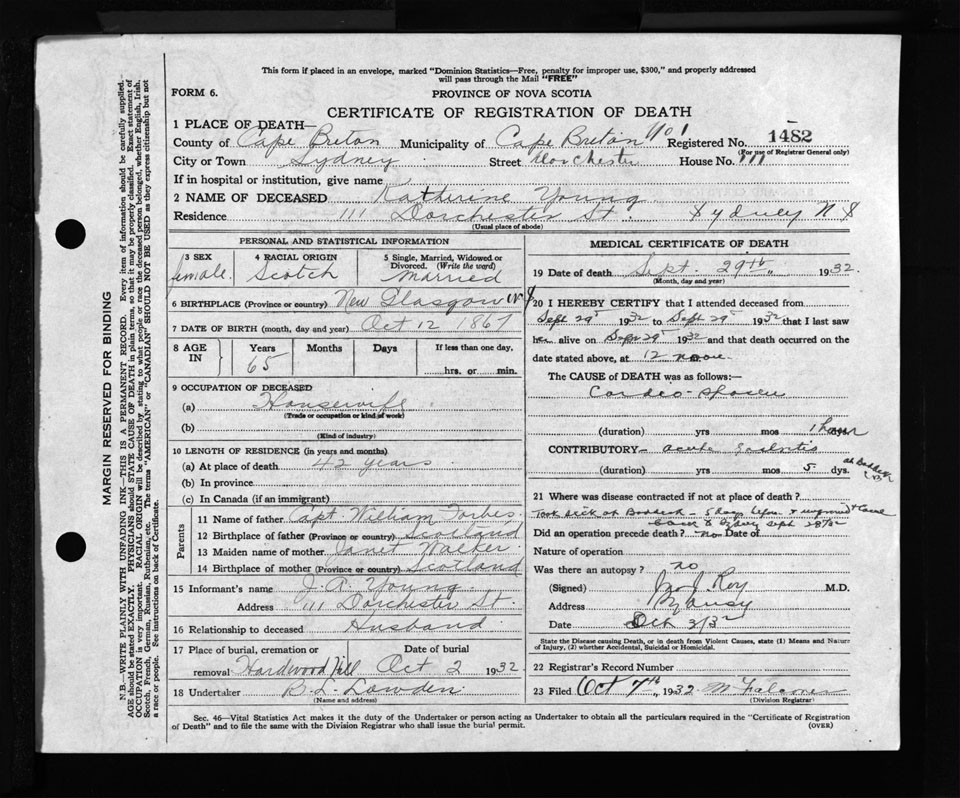 This form if placed in an envelope, marked "Dominion Statistics—Free, penalty for improper use, $300," and properly addressed
will pass through the Mail "FREE"
FORM 6.
PROVINCE OF NOVA SCOTIA
CERTIFICATE OF REGISTRATION OF DEATH
1 PLACE OF DEATH—
County of Cape Breton Municipality of Cape Breton No 1 Registered No. 1482
(For use of Registrar General only)
City or Town Sydney Street Dorchester House No. 111
If in hospital or institution, give name
2 NAME OF DECEASED Katherine Young
Residence 111 Dorchester St. Sydney N S
(Usual place of abode)
PERSONAL AND STATISTICAL INFORMATION
3 SEX female
4 RACIAL ORIGIN Scotch
5 Single, Married, Widowed or
Divorced. (Write the word)
Married
6 BIRTHPLACE (Province or country) New Glasgow N S
7 DATE OF BIRTH (month, day and year) Oct 12 1867
8 AGE IN Years 65 Months Days If less than one day,
hrs. or min.
9 OCCUPATION OF DECEASED
(a) Housewife
(Trade or occupation or kind of work)
(b)
(Kind of industry)
10 LENGTH OF RESIDENCE (in years and months)
(a) At place of death 42 years
(b) In province
(c) In Canada (if an immigrant)
Parents
11 Name of father Capt. William Forbes
12 Birthplace of father (Province or country) Scotland
13 Maiden name of mother Janet Walker
14 Birthplace of mother (Province or country) Scotland
15 Informant's name J. A. Young
Address 111 Dorchester St.
16 Relationship to deceased Husband
17 Place of burial, cremation or Date of burial
removal Hardwood Hill Oct 2 1932
18 Undertaker B. L. Lowden
(Name and address)
MEDICAL CERTIFICATE OF DEATH
19 Date of death Sept. 29th, 1932.
(Month, day and year)
20 I HEREBY CERTIFY that I attended deceased from
Sept 29 1932 to Sept 29 1932 that I last saw
her alive on Sept 29 1932 and that death occurred on the
date stated above, at 12 noon.
The CAUSE of DEATH was as follows:—
(duration) yrs mos 1 hour
CONTRIBUTORY acute
(duration) yrs mos 5 dys. at Baddeck
21 Where was disease contracted if not at place of death?
Took sick at Baddeck 5 days before & improved & came
back to Sydney Sept 28/32
Did an operation precede death? no Date of
Nature of operation
Was there an autopsy? no
(Signed) Roy M.D.
Address
Date Oct 3/32
State the Disease causing Death, or in death from Violent Causes, state (1) Means and Nature
of Injury, (2) whether Accidental, Suicidal or Homicidal.
22 Registrar's Record Number
23 Filed Oct 7th, 1932
(Division Registrar)
Sec. 46—Vital Statistics Act makes it the duty of the Undertaker or person acting as Undertaker to obtain all the particulars required in the "Certificate of Registration
of Death" and to file the same with the Division Registrar who shall issue the burial permit.
(OVER)
MARGIN RESERVED FOR BINDING
N.B.—WRITE PLAINLY WITH UNFADING INK—THIS IS A PERMANENT RECORD. Every item of information should be carefully supplied.
AGE should be stated EXACTLY. PHYSICIANS should STATE CAUSE OF DEATH in plain terms, so that it may be properly classified. Exact statement of
OCCUPATION is very important. RACIAL ORIGIN will be described by stating to what people or race the deceased person belonged, whether English, Irish,
Scotch, French, German, Russian, Ruthenian, etc. The terms "AMERICAN" or "CANADIAN" SHOULD NOT BE USED as they express citizenship but not
a race or people. See instructions on back of Certificate.